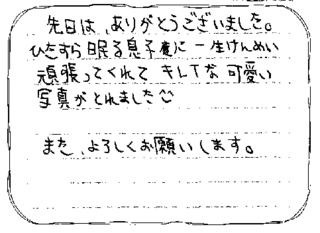 先日は、ありがとうございました。
ひたすら眠る息子に一生けんめい
頑張ってくれて キレイな可愛い
写真がとれました
また、よろしくお願いします。